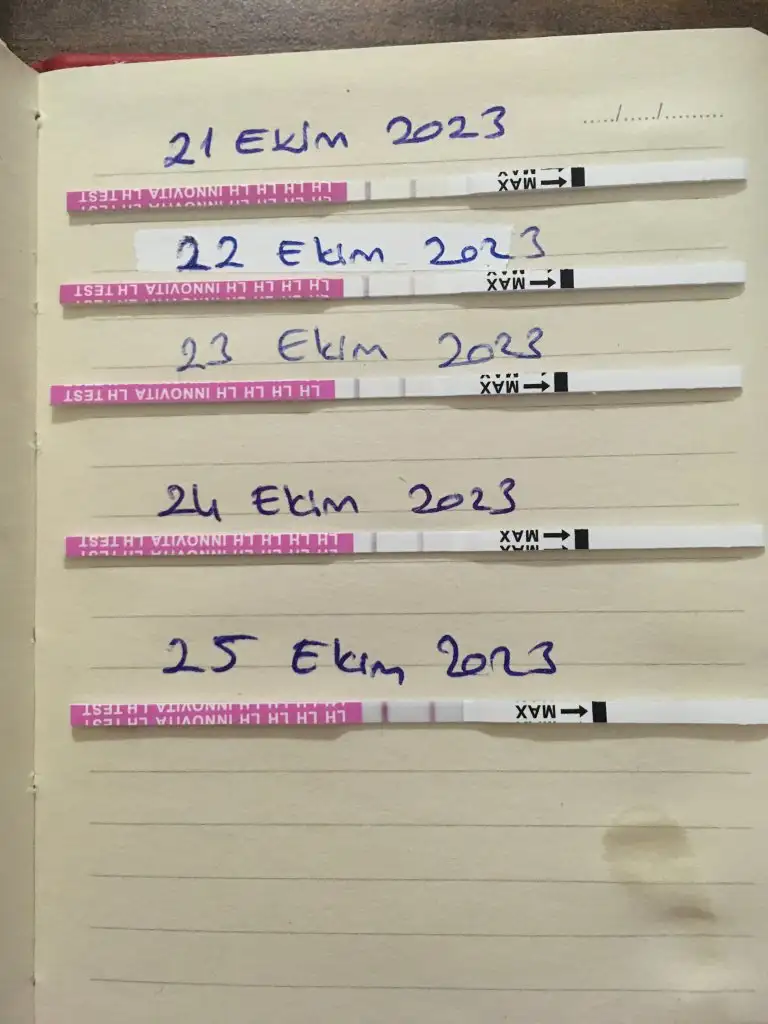 21 Ekim 2023
...../...../.........
LH TEST LH INNOVITA LH LH LH LH LH
MAX
22 Ekim 2023
LH TEST LH INNOVITA LH LH LH LH LH
MAX
23 Ekim 2023
LH TEST LH INNOVITA LH LH LH LH LH
MAX
24 Ekim 2023
LH TEST LH INNOVITA LH LH LH LH LH
MAX
25 Ekim 2023
LH TEST LH INNOVITA LH LH LH LH LH
MAX